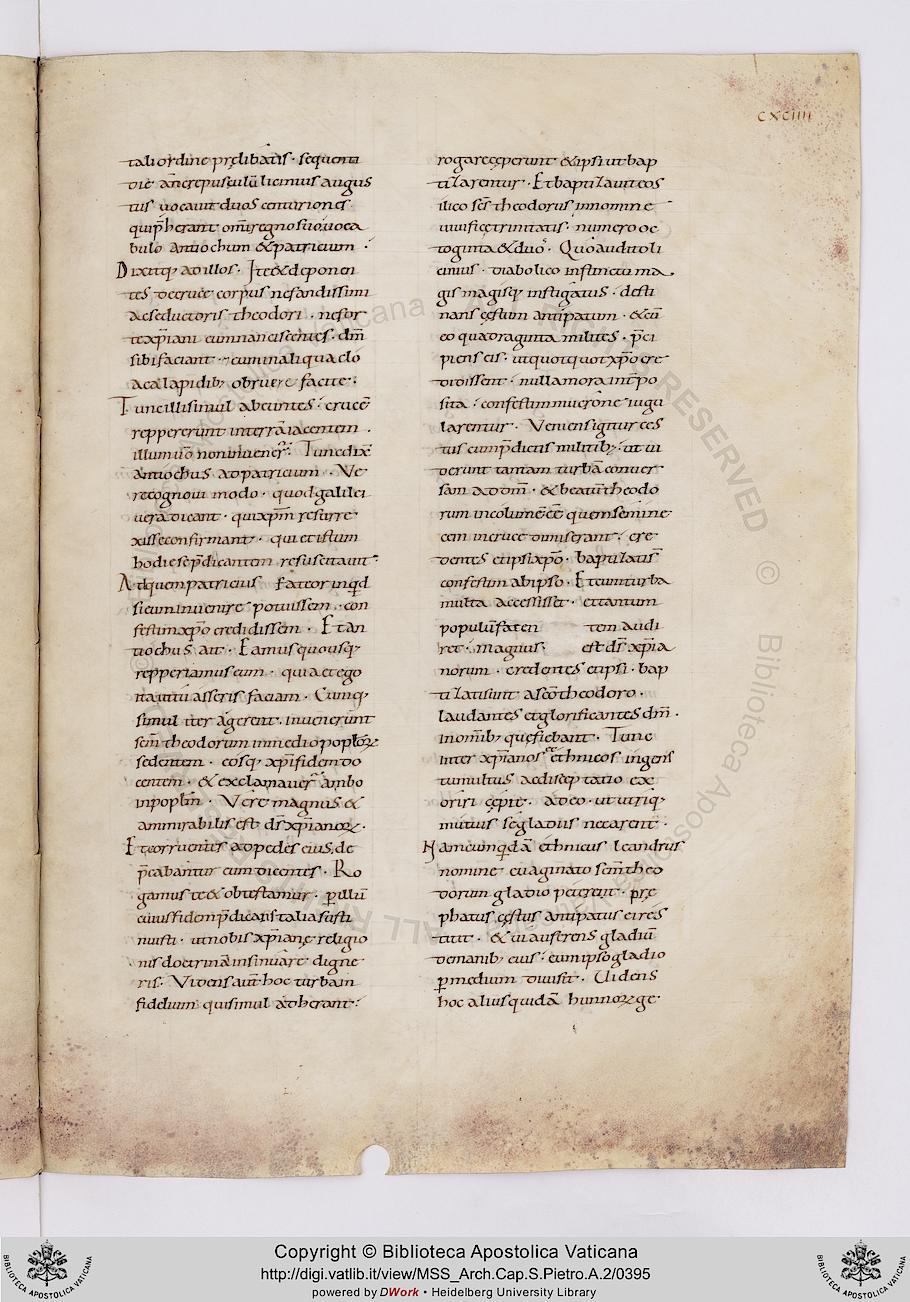 cxciiii
tali ordine prelibatis · sequenti
die an̄ crepusculū licinius augus
tus uocauit duos centuriones ·
qui p̄herant om̄i regno suo uoca
bulo antiochum & patricium ·
Dixitq; ad illos · Ite & deponen
tes de cruce corpus nefandissimi
ac seductoris theodori · ne for
te xp̄iani eum nanciscentes · dm̄
sibi faciant · & eum in aliqua clo
aca lapidib; obruere facite ·
Tunc illi simul abeuntes · crucē
reppererunt in terrā iacentem ·
illum uō non inuener̄ · Tunc dix̄
antiochus ad patricium · Ve
re cognoui modo · quod galilei
uera dicant · qui xp̄m resurre
xisse confirmant · qui et istum
hodie sep̄dicantem resuscitauit ·
Ad quem patricius · Fateor inq̄d
si eum inuenire potuissem · con
festim xp̄o credidissem · Et an
tiochus ait · Eamus quousq;
repperiamus eum · quia et ego
ita ut tu asseris faciam · Cumq;
simul iter agerent · inuenerunt
sc̄m theodorum in medio pop̄loꝝ
sedentem · eosq; xp̄i fidem do
centem · & exclamauer̄ ambo
in pop̄lm · Vere magnus &
ammirabilis est ds̄ xp̄ianoꝝ ·
Et corruentes ad pedes eius, de
p̄cabantur eum dicentes · Ro
gamus te & obtestamur · p̄ illū
cuius fidem p̄dicans talia susti
nuisti · ut nobis xp̄iane religio
nis doctrinā insinuare digne
ris · Videns aut̄ hoc turba in
fidelium qui simul adherant ·
rogare ceperunt & ipsi ut bap
tizarentur · Et baptizauit eos
ilico sc̄s theodorus in nomine
uiuifice trinitatis · numero oc
toginta & duo · Quo audito li
cinius · diabolico instinctu ma
gis magisq; instigatus · desti
nans cestum antipatum · & cū
eo quadraginta milites · p̄ci
piens eis · ut quotquot xp̄o cre
didissent · nulla mora int̄po
sita · confestim mucrone iugu
larentur · Veniens igitur ces
tus cum p̄dictis militib; · ut ui
derunt tantam turbā conuer
sam ad dm̄ · & beatū theodo
rum incolumē ēē quem semine
cem in cruce dimiserant · cre
dentes et ipsi xp̄o · baptizati s̄
confestim ab ipso · Et cum turba
multa accessisset · et tantum
populū faten tem audi
ret · magnus est ds̄ xp̄ia
norum · credentes et ipsi · bap
tizati sunt a sc̄o theodoro ·
laudantes et glorificantes dm̄ ·
in om̄ib; que fiebant · Tunc
inter xp̄ianos & ethnicos ingens
tumultus ac disceptatio cæ
oriri cepit · adeo · ut utriq;
mutuis se gladiis necarent ·
Nam cum q̄dā ethnicus leandrus
nomine euaginato sc̄m theo
dorum gladio peteret · pre
phatus cestus antipatus ei res
titit · & ui auferens gladiū
de manib; eius · eum ipso gladio
p̄ medium diuisit · Uidens
hoc alius quidā hunnoꝝ ge
Copyright © Biblioteca Apostolica Vaticana
http://digi.vatlib.it/view/MSS_Arch.Cap.S.Pietro.A.2/0395
powered by DWork • Heidelberg University Library